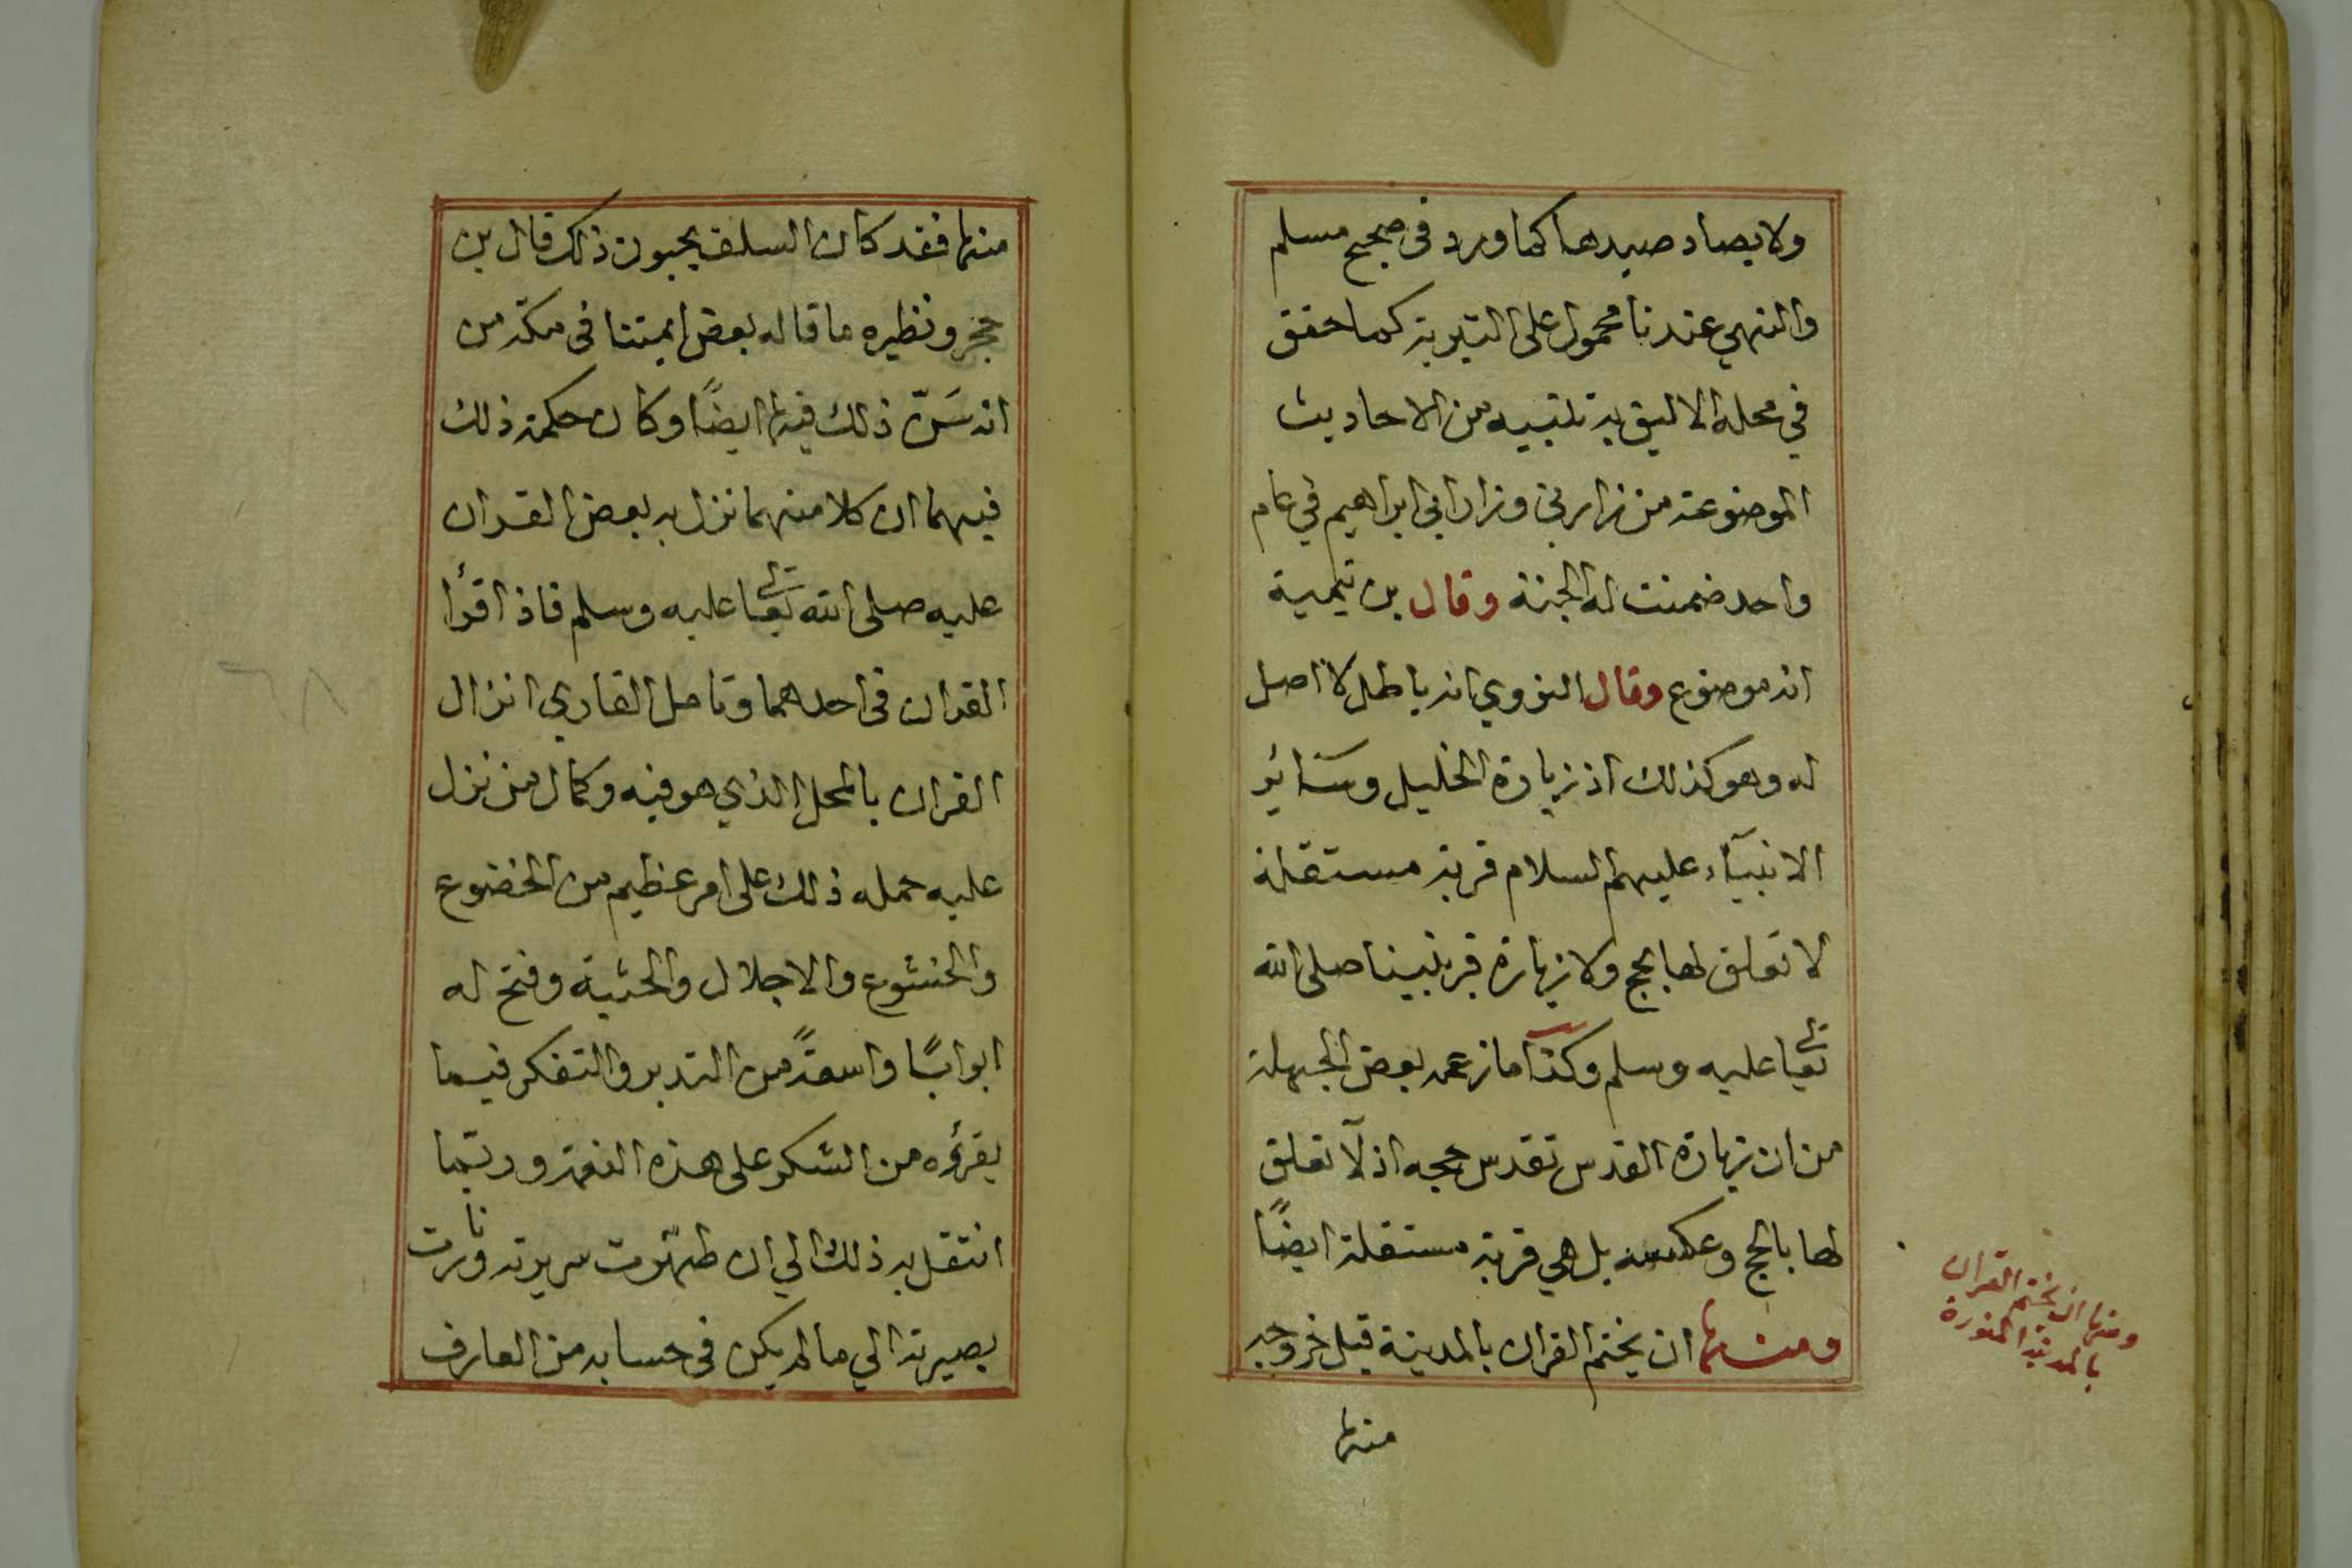 ولا يصاد صيدها كما ورد في صحيح مسلم
والنهي عندنا محمول على التنزيه كما حقق
في محله الاليق به تنبيه من الاحاديث
الموضوعة من زارني وزار ابي ابراهيم في عام
واحد ضمنت له الجنة وقال بن تيمية
انه موضوع وقال النووي انه باطل لا اصل
له وهو كذلك اذ زيارة الخليل وسائر
الانبيآء عليهم السلام قربة مستقلة
لا تعلق لها بالحج ولا بزيارة قبر نبينا صلى الله
تعالى عليه وسلم وكذا ما زعمه بعض الجهلة
من ان زيارة القدس تقدس حجه اذ لا تعلق
لها بالحج وعكسه بل هي قربة مستقلة ايضًا
ومنها ان يختم القران بالمدينة قبل خروجه
منها
ومنها ان يختم القران
بالمدينة المنورة
منها فقد كان السلف يحبون ذلك قال بن
حجر ونظيره ما قاله بعض ايمتنا في مكة من
انه سَنّ ذلك فيها ايضًا وكان حكمة ذلك
فيهما ان كلا منهما نزل به بعض القران
عليه صلى الله تعالى عليه وسلم فاذا قرأ
القران في احدهما وتامل القاري انزال
القران بالمحل الذي هو فيه وكمال من نزل
عليه حمله ذلك على امر عظيم من الخضوع
والخشوع والاجلال والخشية وفتح له
ابوابًا واسعةً من التدبر والتفكر فيما
يقرؤه من الشكر على هذه النعمة وربّما
انتقل به ذلك الي ان طهّرت سريرته ونارت
بصيرته الي ما لم يكن في حسابه من العارف
٦٨